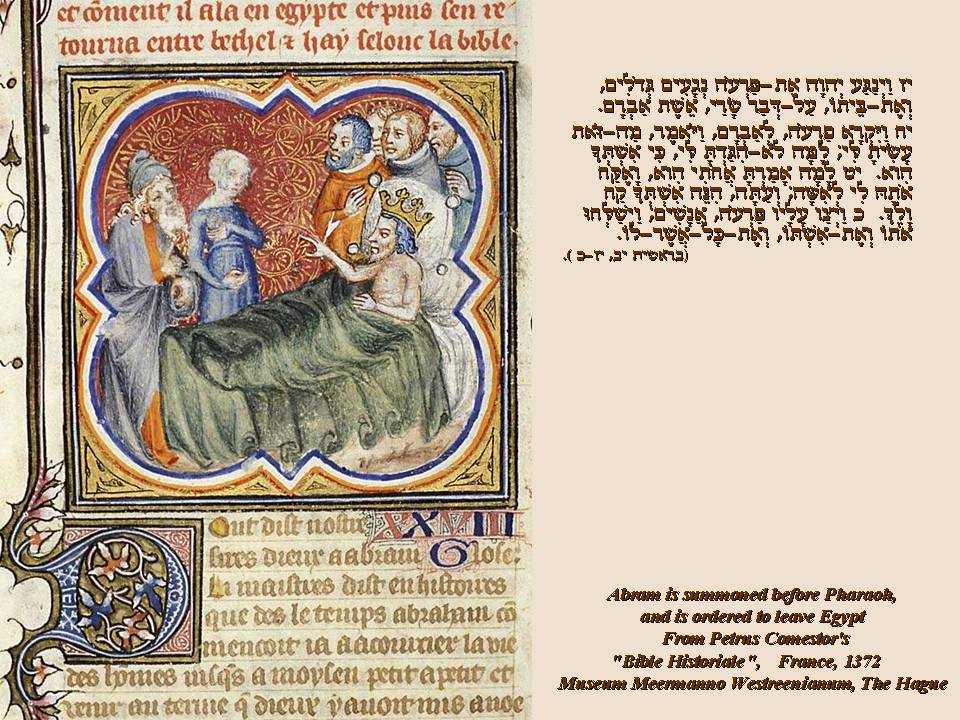 et cõment il ala en egypte et puis sen re
tourna entre bethel ⁊ hay selonc la bible.
יז וַיְנַגַּע יְהוָה אֶת-פַּרְעֹה נְגָעִים גְּדֹלִים,
וְאֶת-בֵּיתוֹ, עַל-דְּבַר שָׂרַי, אֵשֶׁת אַבְרָם.
יח וַיִּקְרָא פַרְעֹה, לְאַבְרָם, וַיֹּאמֶר, מַה-זֹּאת
עָשִׂיתָ לִּי; לָמָּה לֹא-הִגַּדְתָּ לִּי, כִּי אִשְׁתְּךָ
הִוא. יט לָמָה אָמַרְתָּ אֲחֹתִי הִוא, וָאֶקַּח
אֹתָהּ לִי לְאִשָּׁה; וְעַתָּה, הִנֵּה אִשְׁתְּךָ קַח
וָלֵךְ. כ וַיְצַו עָלָיו פַּרְעֹה, אֲנָשִׁים; וַיְשַׁלְּחוּ
אֹתוֹ וְאֶת-אִשְׁתּוֹ, וְאֶת-כָּל-אֲשֶׁר-לוֹ.
(בראשית יב, יז-כ ).
Out dist nostre XXVIII
sires dieux a abraam Glose:
Li maistres dist en histoires
que des le temps abraham cõ
mencoit ia a acourcier la vie
des hõmes iusqs a moysen petit a petit et
venir au terme q̃ dieux y auoit mis a
Abram is summoned before Pharaoh,
and is ordered to leave Egypt
From Petrus Comestor's
"Bible Historiale", France, 1372
Museum Meermanno Westreenianum, The Hague